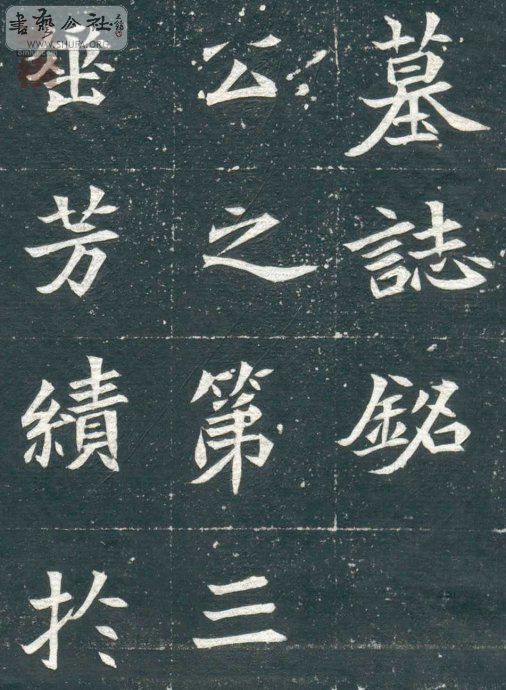 墓誌銘
公之第三
垂芳績於
書藝公社
WWW.SHUFA.ORG